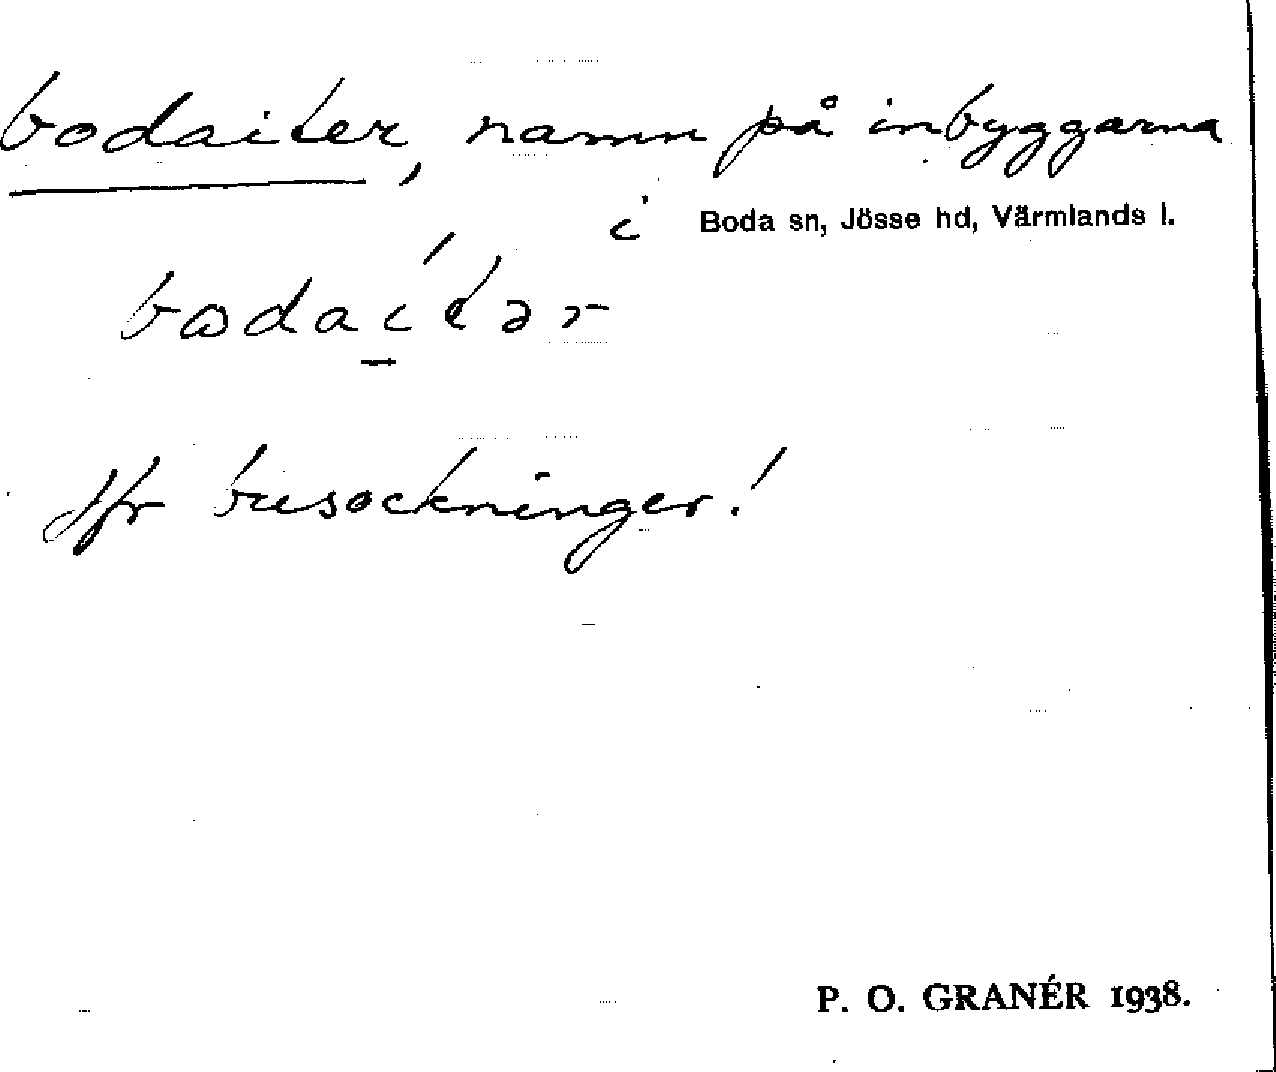 bodaiter, namn på inbyggarna
i Boda sn, Jösse hd, Värmlands l.
Jfr busockninger!
P. O. GRANÉR 1938.